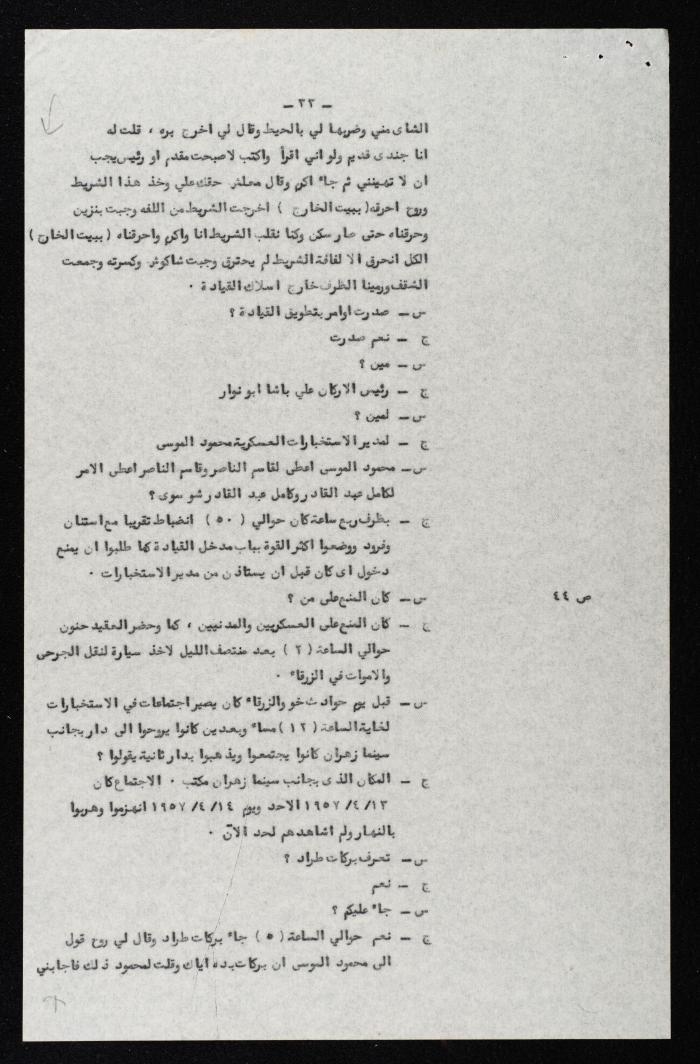 ـ ٣٣ ـ
الشاى مني وضربها لي بالحيط وقال لي اخرج بره ، قلت له
انا جندى قديم ولو اني اقرأ واكتب لاصبحت مقدم او رئيس يجب
ان لا تهينني ثم جاء اكرم وقال معلش حقك علي وخذ هذا الشريط
وروح احرقه( ببيت الخارج ) اخرجت الشريط من اللفه وجبت بنزين
وحرقناه حتى صار سكن وكنا نقلب الشريط انا واكرم واحرقناه ( ببيت الخارج )
الكل انحرق الا لفافة الشريط لم يحترق وجبت شاكوش وكسرته وجمعت
الشقف ورمينا الظرف خارج اسلاك القيادة ٠
س ـ صدرت اوامر بتطويق القيادة ؟
ج ـ نعم صدرت
س ـ مين ؟
ج ـ رئيس الاركان علي باشا ابو نوار
س ـ لمين ؟
ج ـ لمدير الاستخبارات العسكرية محمود الموسى
س ـ محمود الموسى اعطى لقاسم الناصر وقاسم الناصر اعطى الامر
لكامل عبد القادر وكامل عبد القادر شو سوى ؟
ج ـ بظرف ربع ساعة كان حوالي ( ٥٠ ) انضباط تقريبا مع استنان
وفرود ووضعوا اكثر القوة بباب مدخل القيادة كما طلبوا ان يمنع
دخول اى كان قبل ان يستاذن من مدير الاستخبارات ٠
س ـ كان المنع على من ؟
ص ٤٤
ج ـ كان المنع على العسكريين والمدنيين ، كما وحضر العقيد حنون
حوالي الساعة ( ٢ ) بعد منتصف الليل لاخذ سيارة لنقل الجرحى
والاموات في الزرقاء ٠
س ـ قبل يوم حوادث خو والزرقاء كان يصير اجتماعات في الاستخبارات
لغاية الساعة ( ١٢ ) مساء وبعدين كانوا يروحوا الى دار بجانب
سينما زهران كانوا يجتمعوا ويذهبوا بدار ثانية يقولوا ؟
ج ـ المكان الذى بجانب سينما زهران مكتب ٠ الاجتماع كان
١٣/ ٤/ ١٩٥٧ الاحد ويوم ١٤/ ٤/ ١٩٥٧ انهزموا وهربوا
بالنهار ولم اشاهدهم لحد الآن ٠
س ـ تعرف بركات طراد ؟
ج ـ نعم
س ـ جاء عليكم ؟
ج ـ نعم حوالي الساعة ( ٥ ) جاء بركات طراد وقال لي روح قول
الى محمود الموسى ان بركات بده اياك وقلت لمحمود ذلك فاجابني